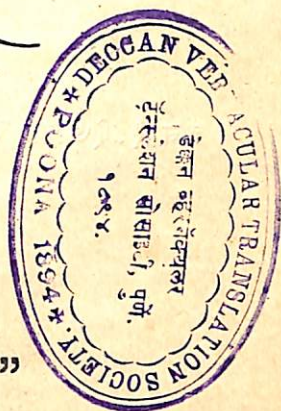 DECCAN VER ACULAR TRANSLATION SOCIETY.
* POONA 1894 *
डेक्कन व्हर्नॅक्युलर
ट्रॅन्स्लेशन सोसाइटी, पुणें.
१८९४.
”